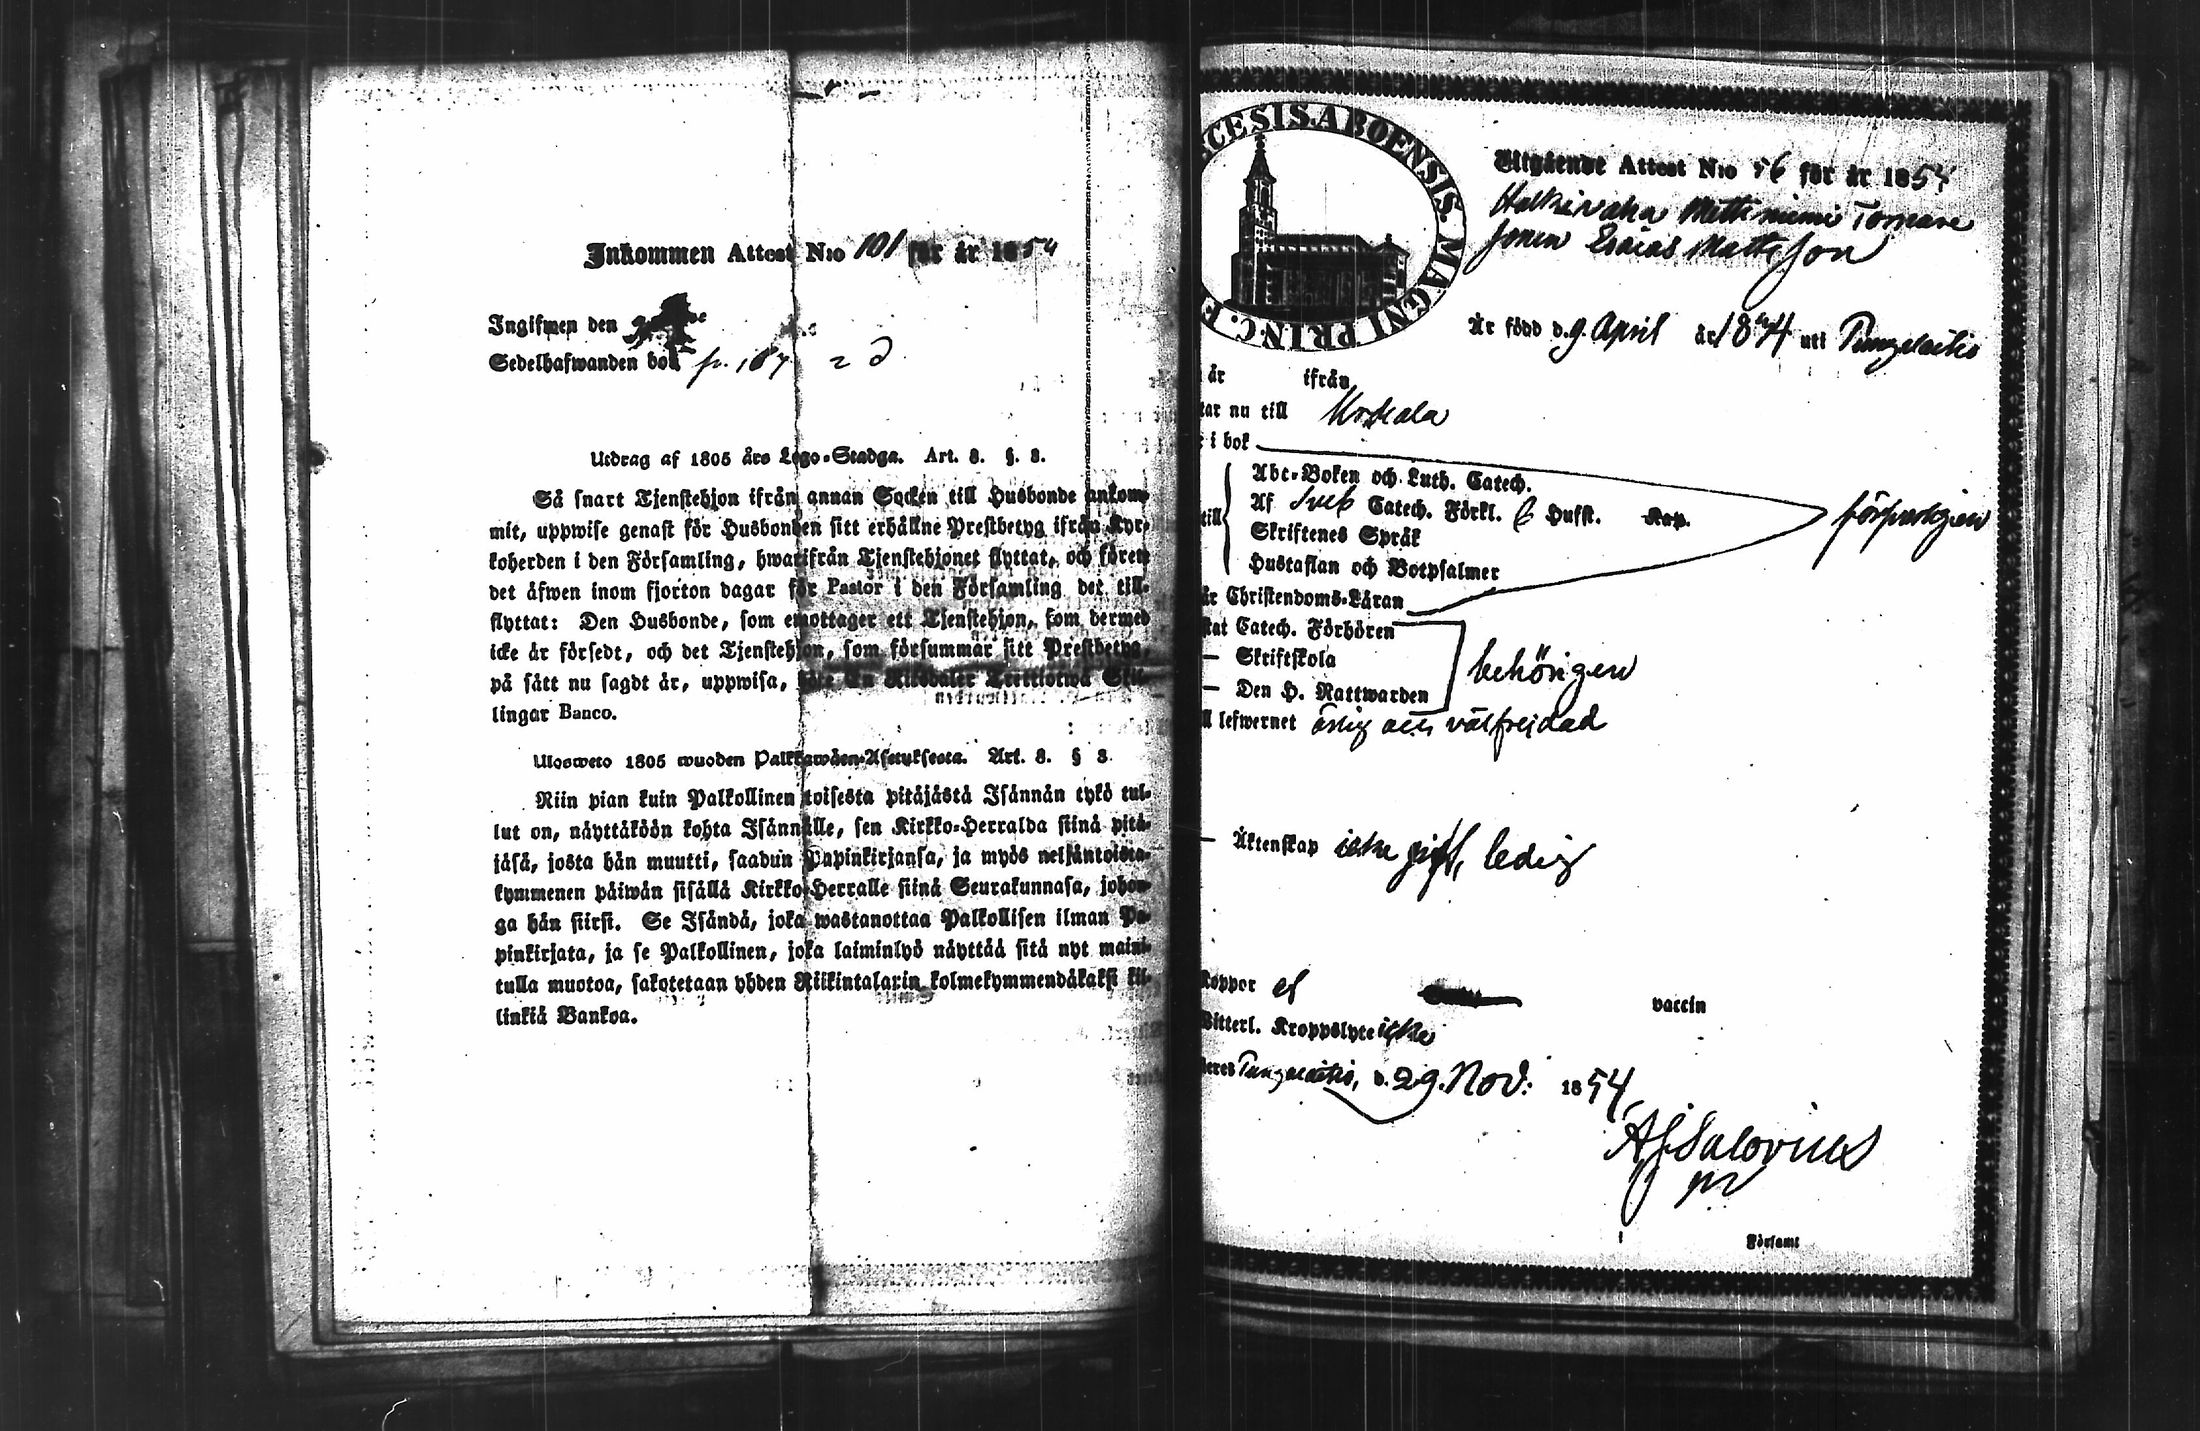 Inkommen Attest N:o 101 för år 1854
Ingifwen den
Sedelhafwanden bor p. 187
Utdrag af 1805 års Lego-Stadga. Art. 8. §. 8.
Så snart Tjenstehjon ifrån annan Socken till Husbonde ankom-
mit, uppwise genast för Husbonden sitt erhållne Prestbetyg ifrån Kyr-
koherden i den Församling, hwarifrån Tjenstehjonet flyttat, och förete
det äfwen inom fjorton dagar för Pastor i den Församling det till-
flyttat: Den Husbonde, som emottager ett Tjenstehjon, som dermed
icke är försedt, och det Tjenstehjon, som försummar sitt Prestbetyg,
på sätt nu sagdt är, uppwisa, böte En Riksdaler Trettiotwå Skil-
lingar Banco.
Ulosweto 1805 wuoden Palkkawäen-Asetuksesta. Art. 8. § 8.
Niin pian kuin Palkollinen toisesta pitäjästä Isännän tykö tul-
lut on, näyttäköön kohta Isännälle, sen Kirkko-Herralda siinä pitä-
jäsä, josta hän muutti, saadun Papinkirjansa, ja myös neljäntoista-
kymmenen päiwän sisällä Kirkko-Herralle siinä Seurakunnasa, johon-
ga hän siirsi. Se Isändä, joka wastanottaa Palkollisen ilman Pa-
pinkirjata, ja se Palkollinen, joka laiminlyö näyttää sitä nyt maini-
tulla muotoa, sakotetaan yhden Riikintalarin kolmekymmendäkaksi kil-
linkiä Bankoa.
CESIS. ABOENSIS. MAGNI PRINC. F
Utgående Attest N:o 56 för år 1854
Mattiniemi Tornare
Sonen Esaias Matts Son
Är född d. 9 April år 1834 uti Pungalaitio
är ifrån
tar nu till Urdiala
i bok
Abc-Boken och Luth. Catech.
till Af Sveb Catech. Förkl. Husft. Kap.
Skriftenes Språk
Hustaflan och Botpsalmer
försvarligen
är Christendoms-Läran
stat Catech. Förhören
— Skriftskola
— Den H. Nattwarden
behörigen
ll lefwernet ärlig och välfrejdad
— Äktenskap icke gift, ledig
Koppor ej vaccin
Witterl. Kroppslyte icke
Pungalaitio, d. 29. Nov: 1854,
A J Salovius
Församt